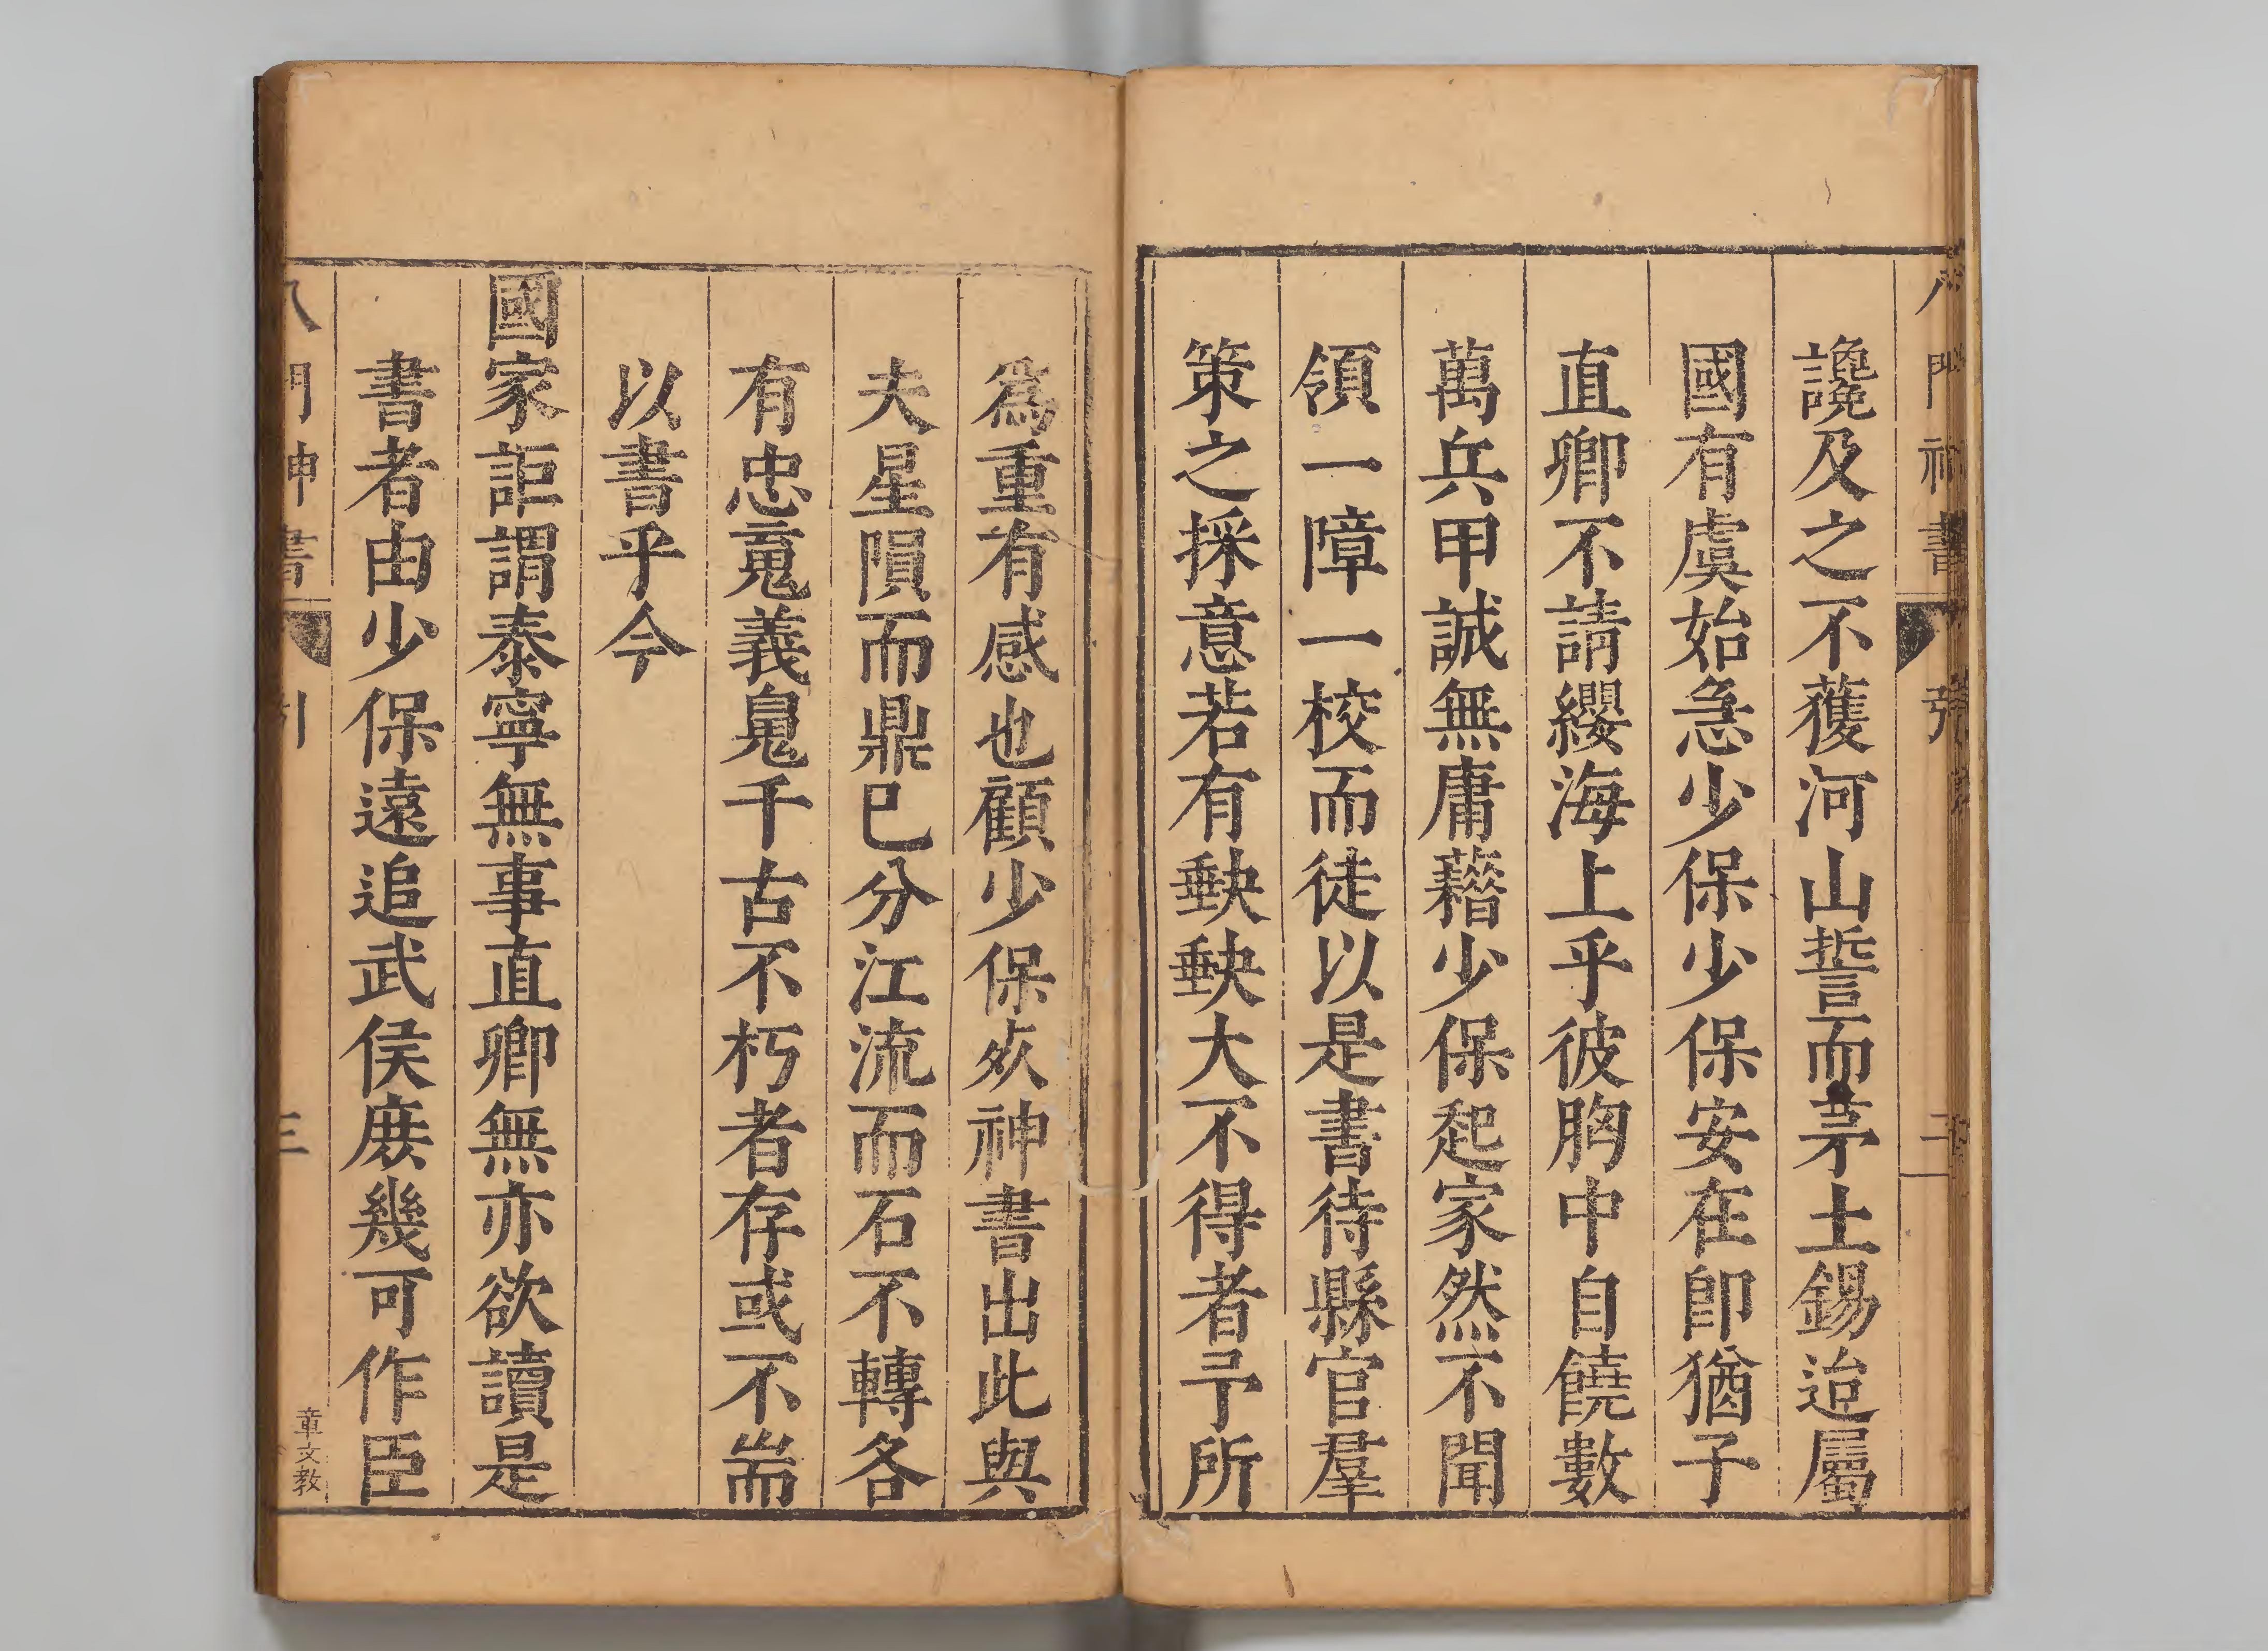 讒及之不獲河山誓而茅土錫迨屬
國有虞始急少保少保安在卽猶子
直卿不請纓海上乎彼胸中自饒數
萬兵甲誠無庸藉少保起家然不聞
領一障一校而徒以是書待縣官羣
策之採意若有缺缺大不得者予所
爲重有感也顧少保歿神書出此與
夫星隕而鼎已分江流而石不轉各
有忠䰟義䰟千古不朽者存或不耑
以書乎今
國家詎謂泰寧無事直卿無亦欲讀是
書者由少保遠追武侯庶幾可作臣
八門神書
引
三
章文教